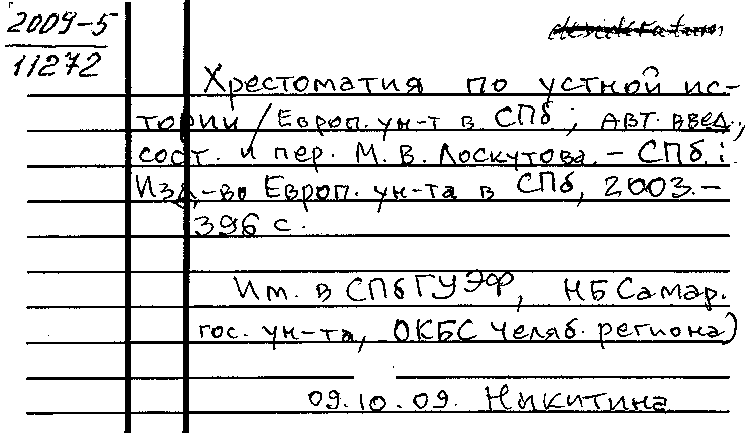 2009-5
11272
desideratum
Хрестоматия по устной ис-
тории / Европ. ун-т в СПб ; авт. введ.,
сост. и пер. М. В. Лоскутова. – СПб. :
Изд-во Европ. ун-та в СПб, 2003. –
396 с.
Им. в СПбГУЭФ, НБ Самар.
гос. ун-та, ОКБС Челяб. региона)
09.10.09. Никитина